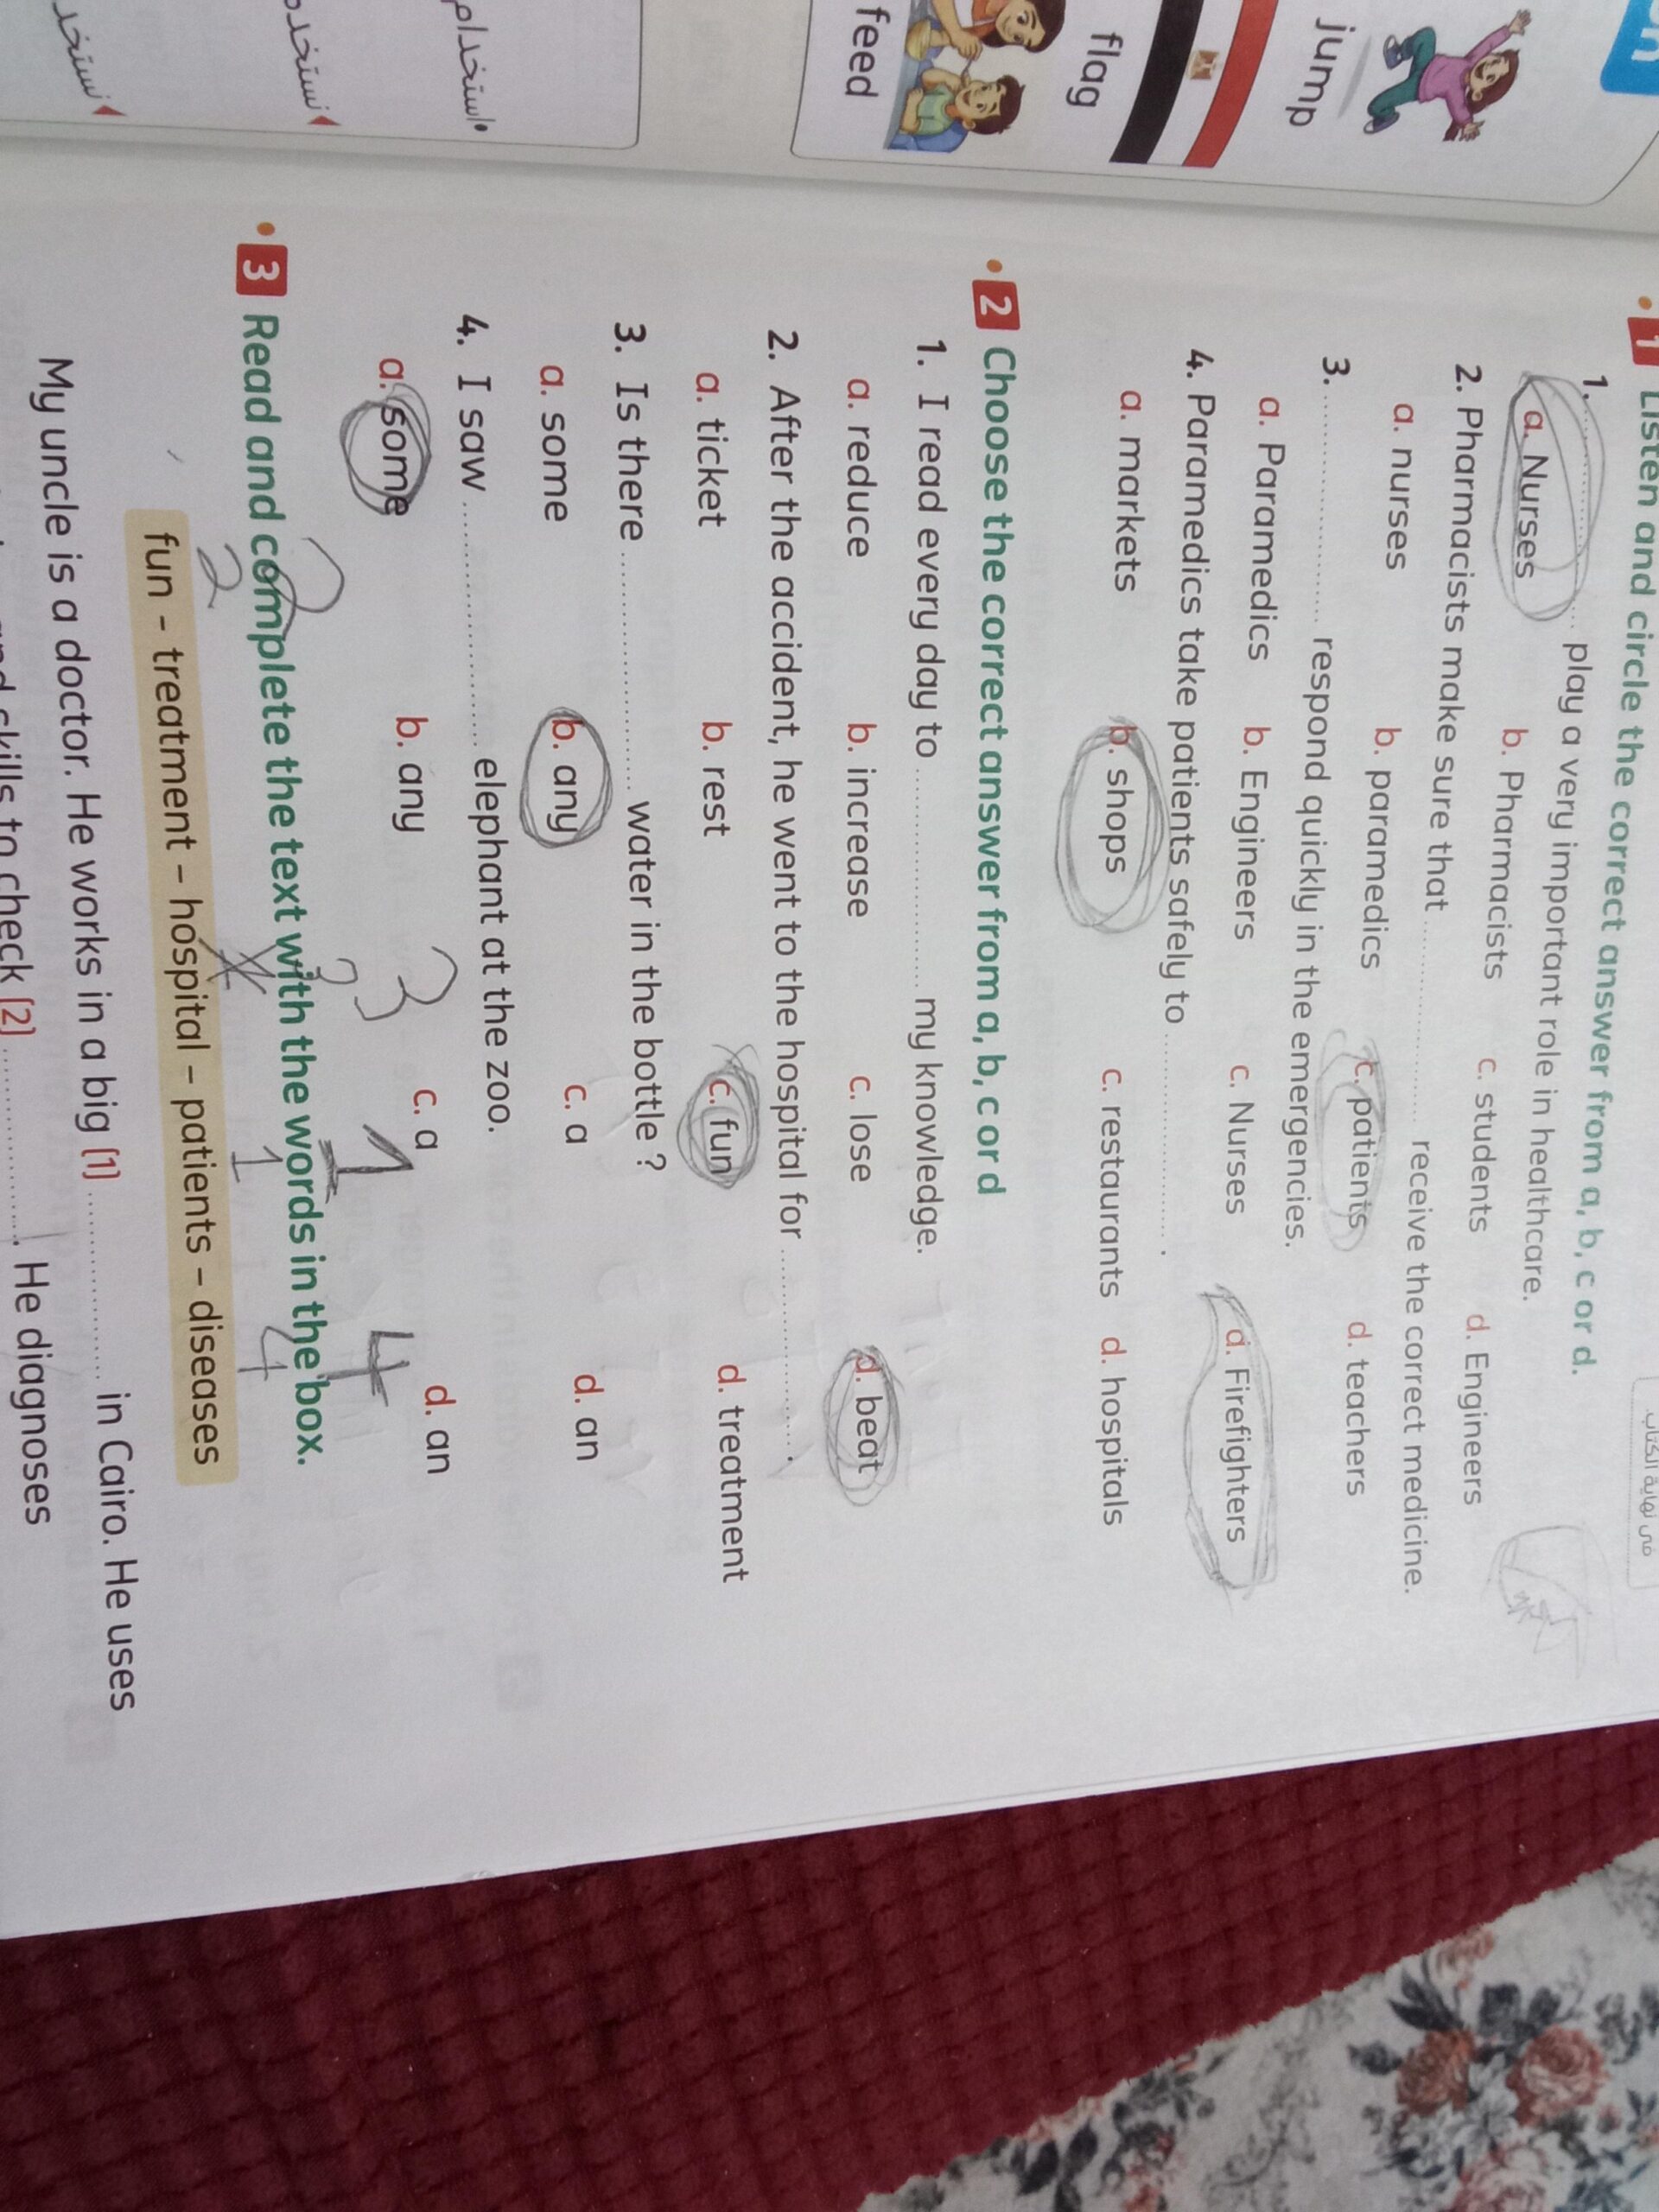 jump
flag
feed
استخدام
نستخد
نستخد
في نهاية الكتاب.
1 Listen and circle the correct answer from a, b, c or d.
1. .................. play a very important role in healthcare.
a. Nurses b. Pharmacists c. students d. Engineers
2. Pharmacists make sure that .................. receive the correct medicine.
a. nurses b. paramedics c. patients d. teachers
3. .................. respond quickly in the emergencies.
a. Paramedics b. Engineers c. Nurses d. Firefighters
4. Paramedics take patients safely to .................. .
a. markets b. shops c. restaurants d. hospitals
2 Choose the correct answer from a, b, c or d
1. I read every day to .................. my knowledge.
a. reduce b. increase c. lose d. beat
2. After the accident, he went to the hospital for .................. .
a. ticket b. rest c. fun d. treatment
3. Is there .................. water in the bottle ?
a. some b. any c. a d. an
4. I saw .................. elephant at the zoo.
a. some b. any c. a d. an
2 3 1 4
3 Read and complete the text with the words in the box.
2 1 4
fun – treatment – hospital – patients – diseases
My uncle is a doctor. He works in a big (1) .................. in Cairo. He uses
skills to check (2) .................. . He diagnoses